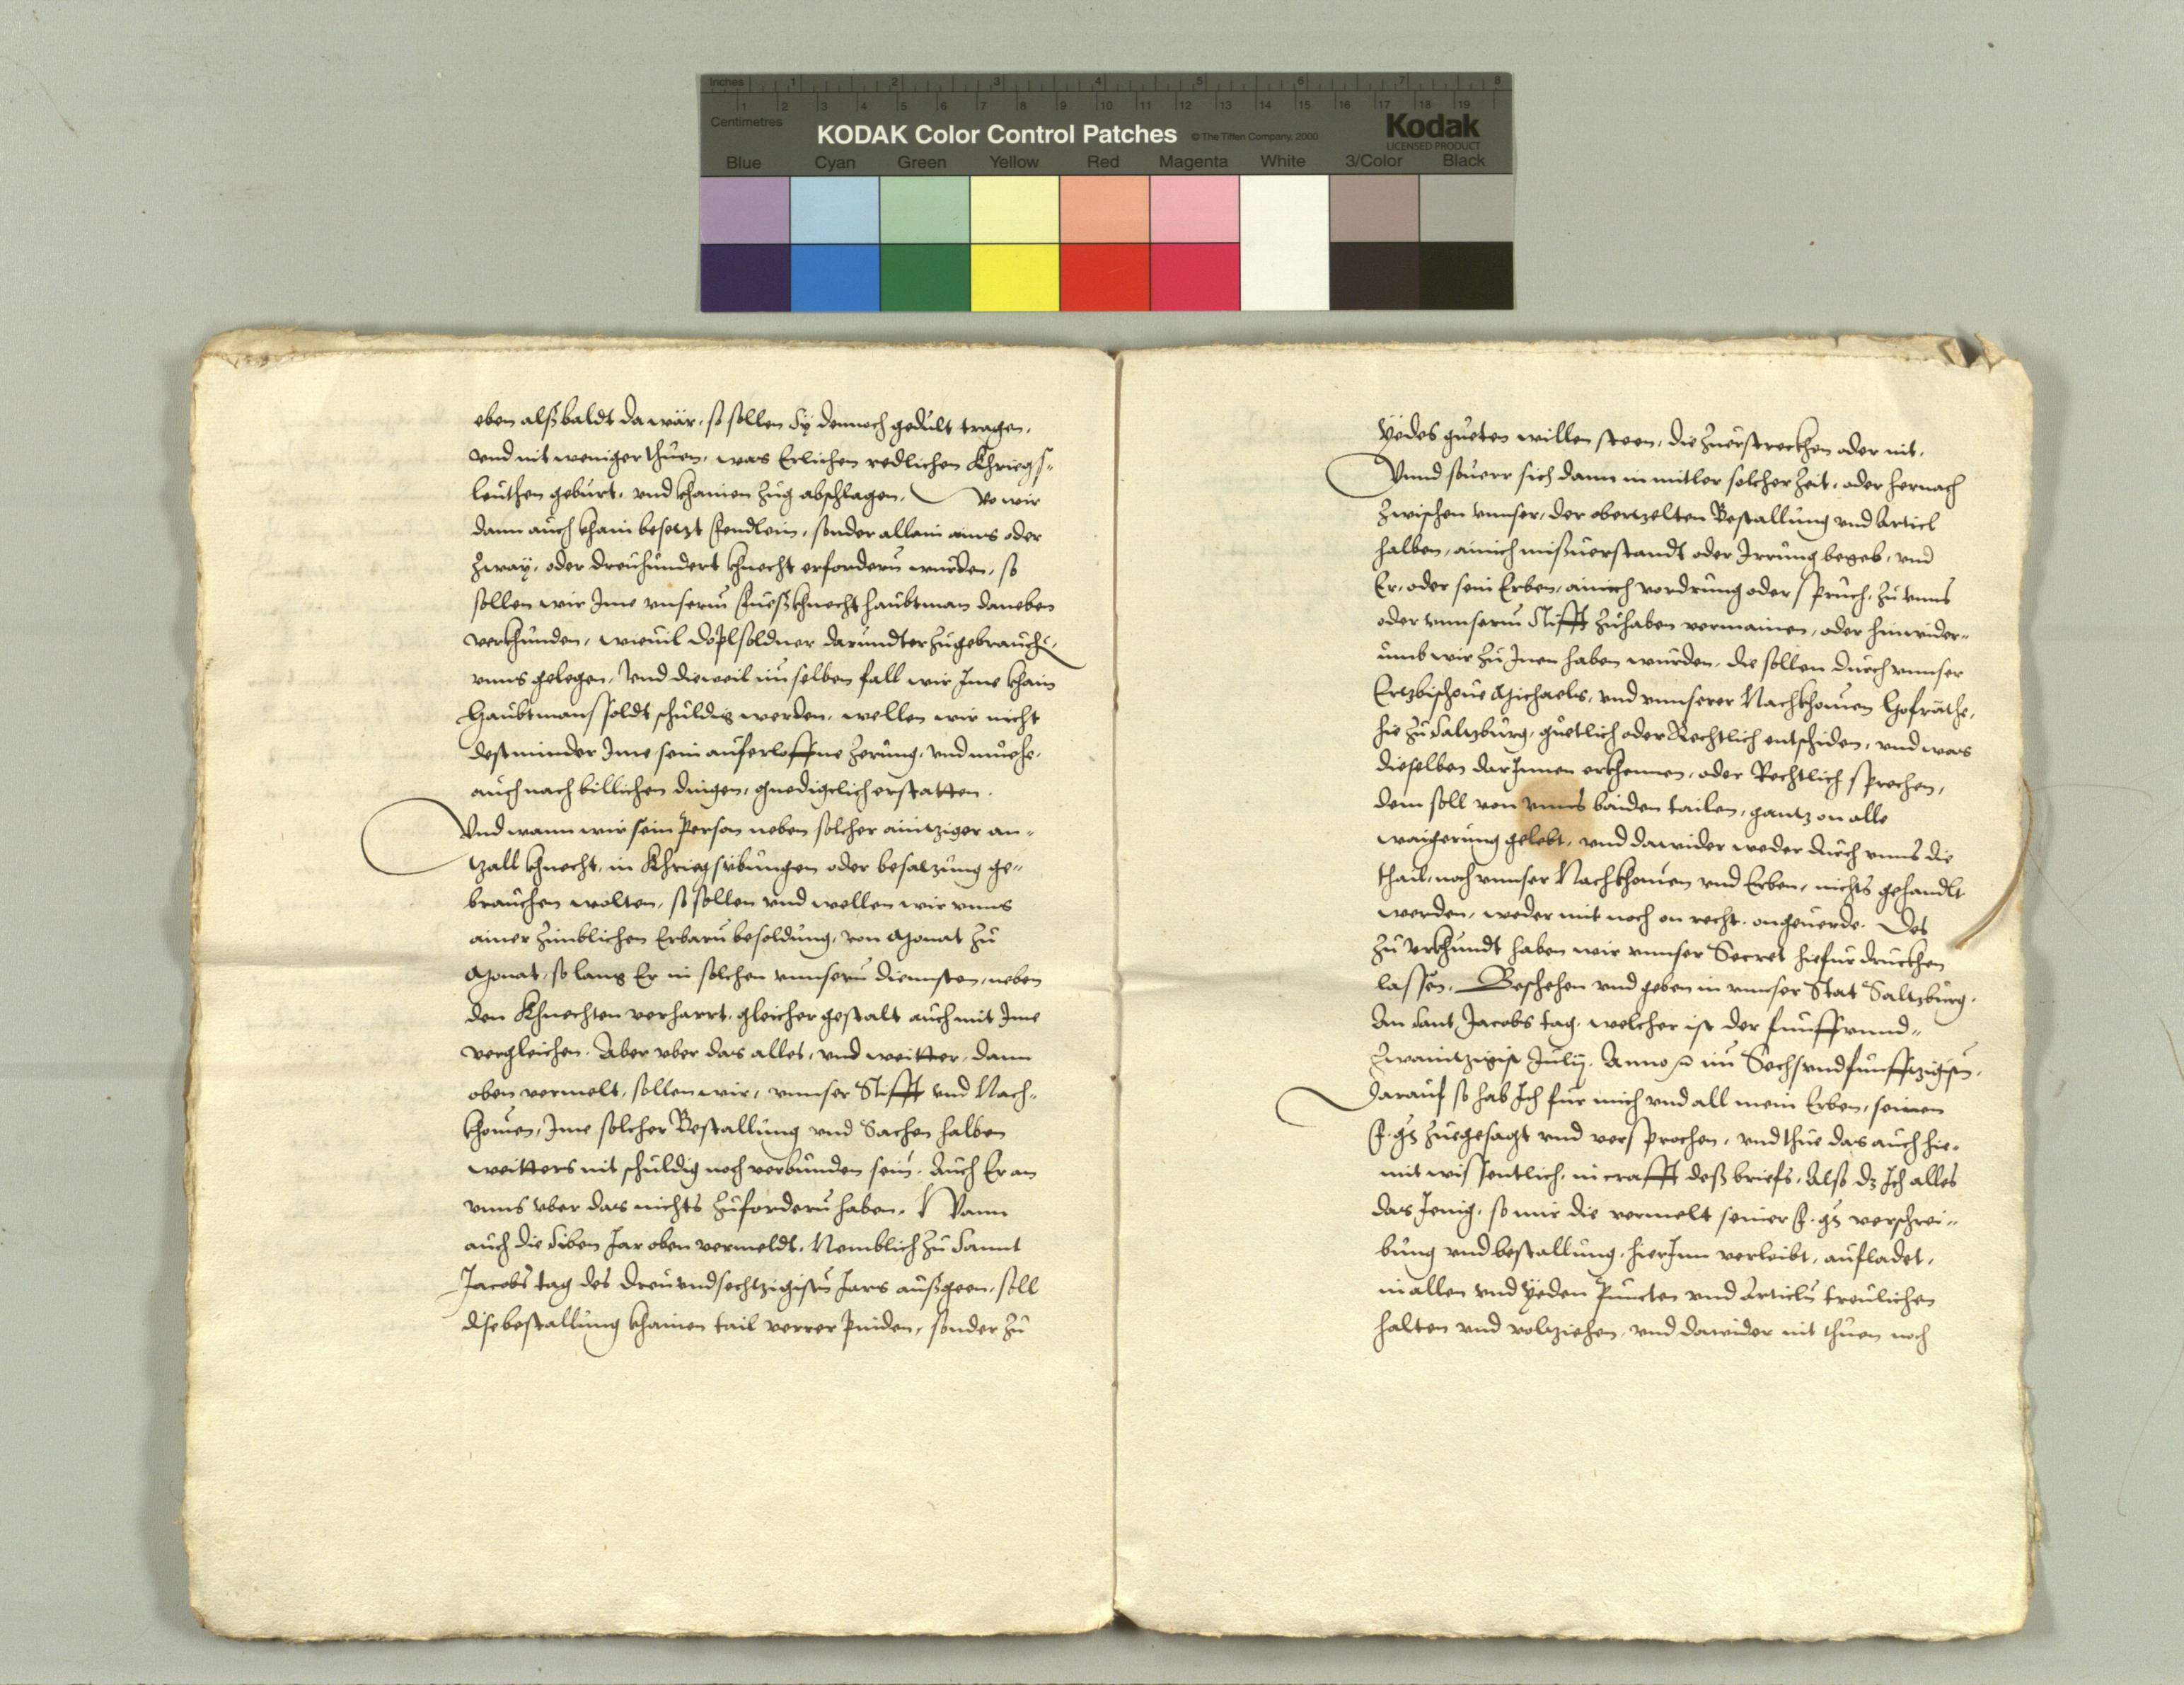 Inches 1 2 3 4 5 6 7 8
1 2 3 4 5 6 7 8 9 10 11 12 13 14 15 16 17 18 19
Centimetres
KODAK Color Control Patches © The Tiffen Company, 2000 Kodak
LICENSED PRODUCT
Blue Cyan Green Yellow Red Magenta White 3/Color Black
eben alßbaldt da wär, so sollen Sÿ dennoch gedult tragen,
vnd nit weniger thuen, was Erlichen redlichen Khriegs„
leuthen geburt, vnd khainen Zug abschlagen. Wo wir
dann auch khain besetzt Fendlein, sonder allain ains oder
Zway, oder dreuhundert khnecht erfordern wurden, so
sollen wir Ime vnserm Fueßkhnecht haubtman daneben
verkhunden, wieuil doplsoldner darundter zugebrauchen,
vnns gelegen, Vnd dieweil im selben fall wir Ime khain
Haubtmanssoldt schuldig werden, wellen wir nicht
destminder Ime sein auferloffne Zerung, vnd muehe,
auch nach billichen dingen, gnedigclich erstatten.
Vnd wann wir sein Person neben solcher aintziger an„
tzall khnecht, in Khriegsübungen oder besatzung ge„
brauchen wolten, so sollen vnd wellen wir vnns
ainer Zimblichen Erbarn besoldung, von Monat zu
Monat, so lang Er in solchen vnnsern diennsten, neben
den Khnechten verharrt, gleicher gestalt auch mit Ime
vergleichen. Aber vber das alles, vnd weitter, dann
oben vermelt, sollen wir, vnnser Stifft vnd Nach„
khomen, Ime solcher Bestallung vnd Sachen halben
weitters nit schuldig noch verbunden sein. Auch Er an
vnns vber das nichts zufordern haben. Wann
auch die Siben Jar oben vermeldt, Nemblich zu Sannt
Jacobs tag des dreuundsechtzigisten Jars außgeen, soll
dise bestallung khainen tail verrer Pinden, sonder zu
Yedes gueten willen steen, die Zuerstreckhen oder nit.
Vnnd souerr sich dann in mitler solcher Zeit, oder hernach
Zwischen vnnser, der obertzelten Bestallung vnd Articl
halben, ainich mißuerstandt oder Irrung begeb, vnd
Er, oder sein Erben, ainich vordrung oder spruch, zu vnns
oder vnnserm Stifft zuhaben vermainen, oder hinwider„
umb wir zu Inen haben wurden, die sollen durch vnnser
Ertzbischoue Michaels, vnd vnnserer Nachkhomen Hofräthe,
hie zu Saltzburg, guetlich oder Rechtlich entschiden, vnd was
dieselben darInnen erkhennen, oder Rechtlich sprechen,
dem soll von vnns baiden tailen, gantz on alle
waigerung gelebt, vnd dawider weder durch vnns die
thail, noch vnnser Nachkhomen vnd Erben, nichts gehandlt
werden, weder mit noch on recht. ongeuerde. Des
zu vrkhundt haben wir vnnser Secret hiefur druckhen
lassen. Beschehen vnd geben in vnnser Stat Saltzburg.
An Sant Jacobs tag, welcher ist der funffvnnd„
Zwaintzigist July. Anno im Sechsvndfunfftzigisten.
Darauf so hab Ich fur mich vnd all mein Erben, seinen
F. gn zuegesagt vnd versprochen, vnd thue das auch hie„
mit wissentlich, in crafft deß briefs, Also dz Ich alles
das Jenig, so mir die vermelt seiner F. gn verschrei„
bung vnd bestallung, hierInn verleibt, aufladet,
in allen vnd Yeden Puncten vnd Articln treulichen
halten vnd volziehen, vnd dawider nit thuen noch